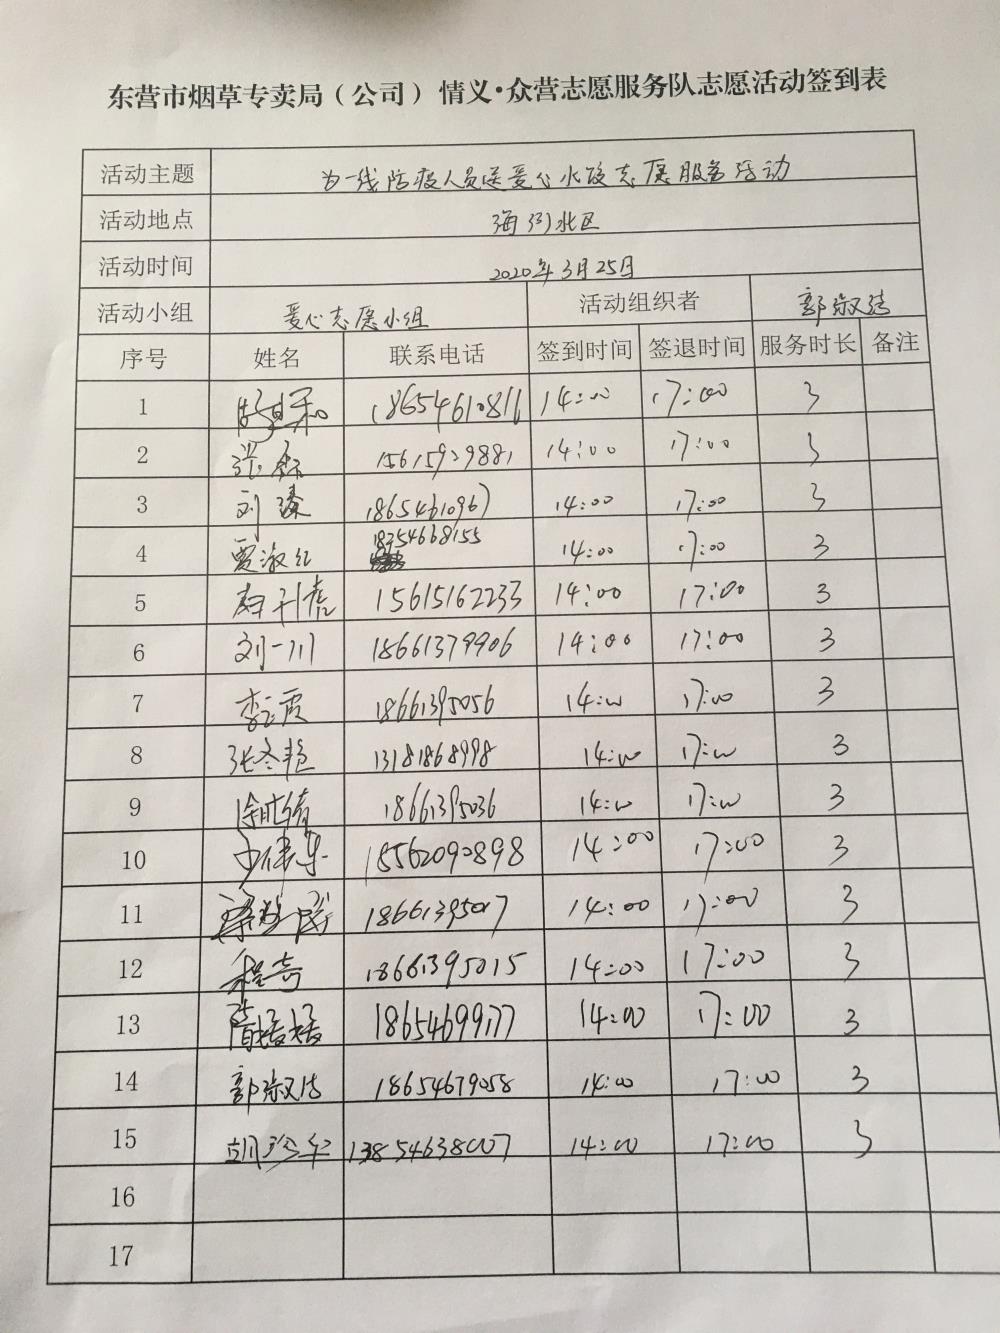 东营市烟草专卖局（公司）情义·众营志愿服务队志愿活动签到表
活动主题 为一线防疫人员送爱心水饺志愿服务活动
活动地点 海河北区
活动时间 2020年3月25日
活动小组 爱心志愿小组 活动组织者 郭淑洁
序号 姓名 联系电话 签到时间 签退时间 服务时长 备注
1 18654610811 14:00 17:00 3
2 张 15615929881 14:00 17:00 3
3 刘臻 18654610967 14:00 17:00 3
4 贾淑红 18354668155 14:00 17:00 3
5 15615162233 14:00 17:00 3
6 刘一川 18661379906 14:00 17:00 3
7 李云霞 18661395056 14:00 17:00 3
8 张冬艳 13181868998 14:00 17:00 3
9 徐 18661395036 14:00 17:00 3
10 15562090898 14:00 17:00 3
11 18661395017 14:00 17:00 3
12 程奇 18661395015 14:00 17:00 3
13 媛媛 18654699177 14:00 17:00 3
14 郭淑洁 18654679058 14:00 17:00 3
15 13854638007 14:00 17:00 3
16
17